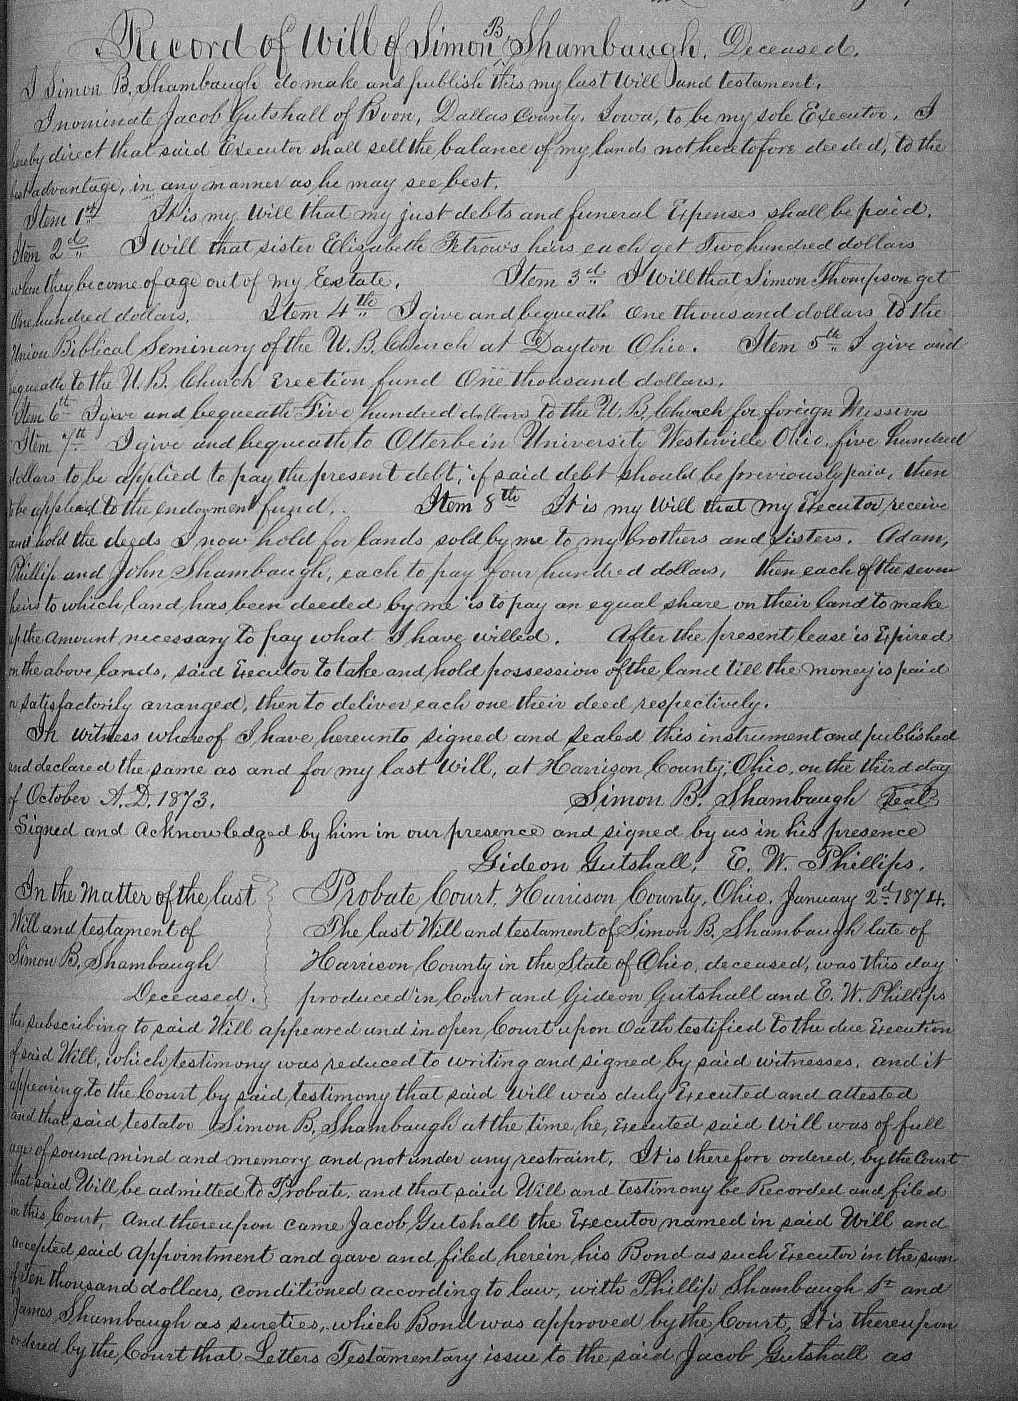 Record of Will of Simon B Shambaugh. Deceased.
I Simon B. Shambaugh do make and publish this my last Will and testament.
I nominate Jacob Gutshall of Boon, Dallas County, Iowa, to be my sole Executor. I
hereby direct that said Executor shall sell the balance of my lands not heretofore deeded, to the
best advantage, in any manner as he may see best.
Item 1st It is my Will that my just debts and funeral Expenses shall be paid.
Item 2d I will that sister Elizabeth Fetrow's heirs each get Two hundred dollars
when they become of age out of my Eestate. Item 3d I Will that Simon Thompson get
One hundred dollars. Item 4th I give and bequeath One thousand dollars to the
Union Biblical Seminary of the U. B. Church at Dayton Ohio. Item 5th I give and
bequeath to the U. B. Church Erection fund One thousand dollars.
Item 6th I give and bequeath Five hundred dollars to the U. B. Church for foreign Mission
Item 7th I give and bequeath to Otterbein University Westerville Ohio, five hundred
dollars to be applied to pay the present debt, if said debt should be previously paid, then
to be applied to the endowment fund. Item 8th It is my Will that my Executor receive
and hold the deeds I now hold for lands sold by me to my brothers and Sisters. Adam,
Phillip and John Shambaugh, each to pay four hundred dollars, then each of the seven
heirs to which land has been deeded by me is to pay an equal share on their land to make
up the amount necessary to pay what I have willed. After the present lease is Expired
on the above lands, said Executor to take and hold possession of the land till the money is paid
or satisfactorily arranged, then to deliver each one their deed respectively.
In witness whereof I have hereunto signed and sealed this instrument and published
and declared the same as and for my last Will, at Harrison County, Ohio, on the third day
of October A.D. 1873. Simon B. Shambaugh Seal
Signed and Acknowledged by him in our presence and signed by us in his presence
Gideon Gutshall, E. W. Phillips.
In the Matter of the last Probate Court, Harrison County, Ohio, January 2d 1874.
Will and testament of The last Will and testament of Simon B. Shambaugh late of
Simon B. Shambaugh Harrison County in the State of Ohio, deceased, was this day
Deceased. produced in Court and Gideon Gutshall and E. W. Phillips
the subscribing to said Will appeared and in open Court upon Oath testified to the due Execution
of said Will, which testimony was reduced to writing and signed by said witnesses. and it
appearing to the Court by said testimony that said Will was duly Executed and attested
and that said testator Simon B. Shambaugh at the time he Executed said Will was of full
age of sound mind and memory and not under any restraint. It is therefore ordered, by the Court
that said Will be admitted to Probate, and that said Will and testimony be Recorded and filed
in this Court. And thereupon came Jacob Gutshall the Executor named in said Will and
accepted said Appointment and gave and filed herein his Bond as such Executor in the sum
of Ten thousand dollars, conditioned according to law, with Phillip Shambaugh and
James Shambaugh as sureties, which Bond was approved by the Court. It is thereupon
ordered by the Court that Letters Testamentary issue to the said Jacob Gutshall as